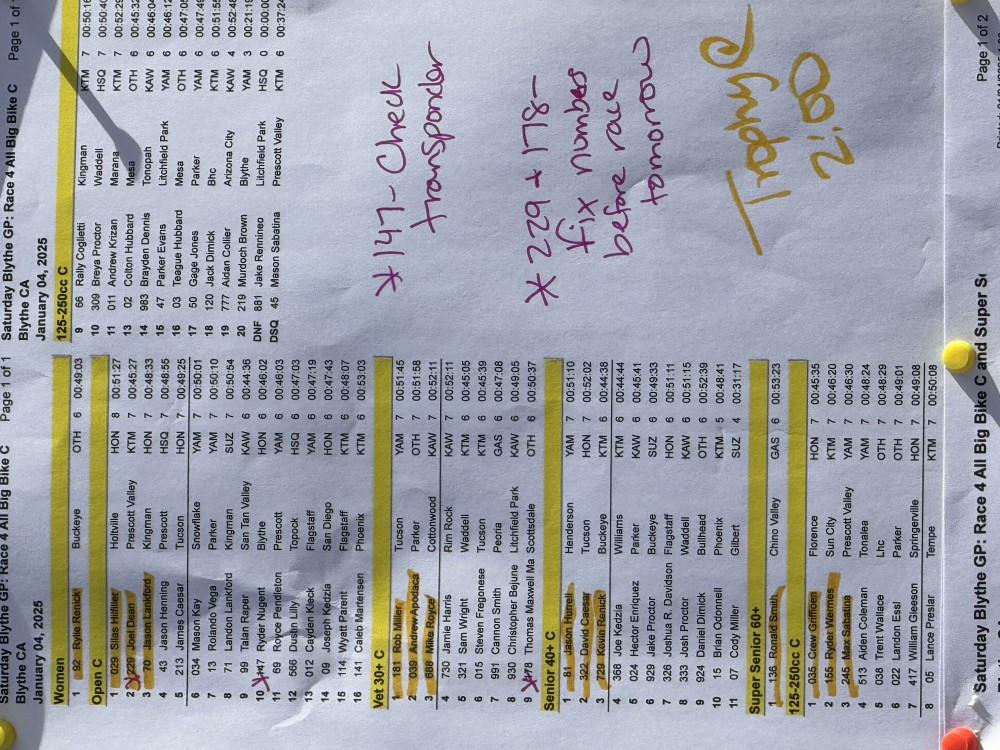 Saturday Blythe GP: Race 4 All Big Bike C Page 1 of 1
Blythe CA
January 04, 2025
Women
1 92 Rylie Renick Buckeye OTH 6 00:49:03
Open C
1 029 Silas Hillier Holtville HON 8 00:51:27
2 229 Joel Dean Prescott Valley KTM 7 00:45:27
3 70 Jason Lankford Kingman HON 7 00:48:33
4 43 Jason Henning Prescott HSQ 7 00:48:55
5 213 James Caesar Tucson HON 7 00:49:25
6 034 Mason Kay Snowflake YAM 7 00:50:01
7 13 Rolando Vega Parker YAM 7 00:50:10
8 71 Landon Lankford Kingman SUZ 7 00:50:54
9 99 Talan Raper San Tan Valley KAW 6 00:44:36
10 147 Ryder Nugent Blythe HON 6 00:46:02
11 69 Royce Pendleton Prescott YAM 6 00:46:03
12 566 Dustin Lilly Topock HSQ 6 00:47:03
13 012 Cayden Kleck Flagstaff YAM 6 00:47:19
14 09 Joseph Kedzia San Diego HON 6 00:47:43
15 114 Wyatt Parent Flagstaff KTM 6 00:48:07
16 141 Caleb Martensen Phoenix KTM 6 00:53:03
Vet 30+ C
1 181 Rob Miller Tucson YAM 7 00:51:45
2 039 Andrew Apodaca Parker OTH 7 00:51:58
3 688 Mike Royce Cottonwood KAW 7 00:52:11
4 730 Jamie Harris Rim Rock KAW 7 00:52:11
5 321 Sam Wright Waddell KTM 6 00:45:05
6 015 Steven Fregonese Tucson KTM 6 00:45:39
7 991 Cannon Smith Peoria GAS 6 00:47:08
8 930 Christopher Bejune Litchfield Park KAW 6 00:49:05
9 178 Thomas Maxwell Ma Scottsdale OTH 6 00:50:37
Senior 40+ C
1 81 Jason Hurrell Henderson YAM 7 00:51:10
2 322 David Caesar Tucson HON 7 00:52:02
3 729 Kevin Renick Buckeye KTM 6 00:44:38
4 368 Joe Kedzia Williams KTM 6 00:44:44
5 024 Hector Enriquez Parker KAW 6 00:45:41
6 929 Jake Proctor Buckeye SUZ 6 00:49:33
7 326 Joshua R. Davidson Flagstaff HON 6 00:51:11
8 333 Josh Proctor Waddell KAW 6 00:51:15
9 924 Daniel Dimick Bullhead OTH 6 00:52:39
10 15 Brian Odonnell Phoenix KTM 5 00:48:41
11 07 Cody Miller Gilbert SUZ 4 00:31:17
Super Senior 60+
1 136 Ronald Smith Chino Valley GAS 6 00:53:23
125-250cc C
1 035 Crew Griffioen Florence HON 7 00:45:35
2 155 Ryder Wermes Sun City KTM 7 00:46:20
3 245 Max Sabatina Prescott Valley YAM 7 00:46:30
4 513 Aiden Coleman Tonalea YAM 7 00:48:24
5 038 Trent Wallace Lhc OTH 7 00:48:29
6 022 Landon Essl Parker OTH 7 00:49:01
7 417 William Gleeson Springerville HON 7 00:49:08
8 05 Lance Preslar Tempe KTM 7 00:50:08
Saturday Blythe GP: Race 4 All Big Bike C Page 1 of
Blythe CA
January 04, 2025
125-250cc C
9 66 Rally Coglietti Kingman KTM 7 00:50:16
10 309 Breya Proctor Waddell HSQ 7 00:50:40
11 011 Andrew Krizan Marana KTM 7 00:52:29
13 02 Colton Hubbard Mesa OTH 6 00:45:32
14 983 Brayden Dennis Tonopah KAW 6 00:46:04
15 47 Parker Evans Litchfield Park YAM 6 00:46:12
16 03 Teague Hubbard Mesa OTH 6 00:47:05
17 50 Gage Jones Parker YAM 6 00:47:49
18 120 Jack Dimick Bhc KTM 6 00:51:55
19 777 Aidan Collier Arizona City KAW 4 00:52:48
20 219 Murdoch Brown Blythe YAM 3 00:21:19
DNF 881 Jake Rennineo Litchfield Park HSQ 0 00:00:00
DSQ 45 Mason Sabatina Prescott Valley KTM 6 00:37:24
*147- Check
transponder
* 229 + 178-
fix numbers
before race
tomorrow
Trophy C
2:00
Saturday Blythe GP: Race 4 All Big Bike C and Super Se
Page 1 of 2